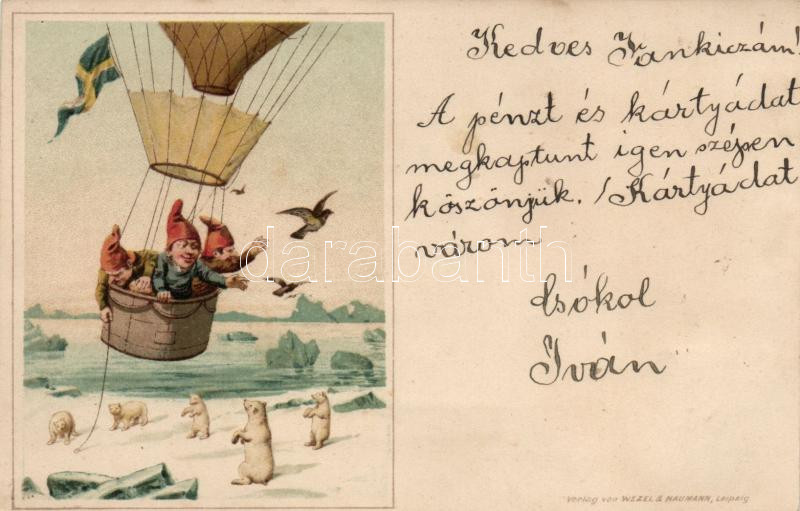 Kedves Jankiczám!
A pénzt és kártyádat
megkaptunt igen szépen
köszönjük. / Kártyádat
várom
Csókol
Iván
darabanth
Verlag von WEZEL & NAUMANN, Leipzig